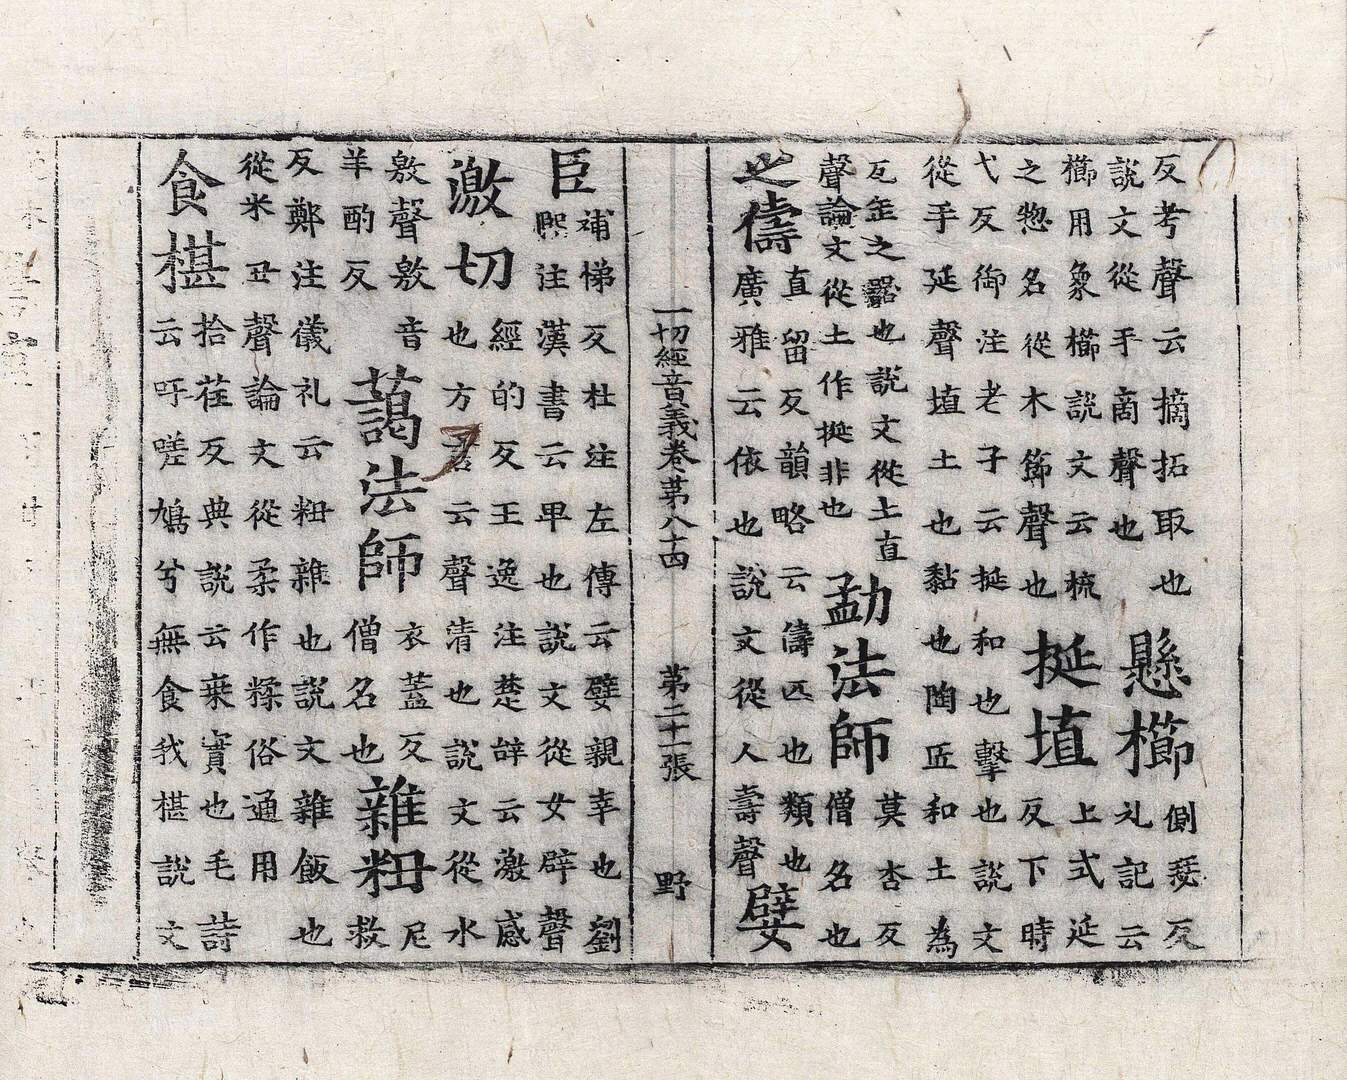 反考聲云摘拓取也
說文從手啇聲也
懸櫛
側瑟反
礼記云
櫛用象櫛說文云梳
之惣名從木節聲也
挻埴
上式延
反下時
弋反御注老子云挻和也擊也說文
從手延聲埴土也黏也陶匠和土為
瓦缶之器也說文從土直
聲論文從土作挻非也
勐法師
莫杏反
僧名也
之儔
直留反韻略云儔匹也類也
廣雅云依也說文從人壽聲
嬖
一切經音義卷第八十四 第二十一張 野
臣
補悌反杜注左傳云嬖親幸也劉
熙注漢書云甲也說文從女辟聲
激切
經的反王逸注楚辞云激感
也方言云聲清也說文從水
敫聲敫音
羊酌反
藹法師
衣蓋反
僧名也
雜粈
尼
救
反鄭注儀礼云粈雜也說文雜飯也
從米丑聲論文從柔作糅俗通用
食椹
拾荏反典說云桒實也毛詩
云吁嗟鳩兮無食我椹說文